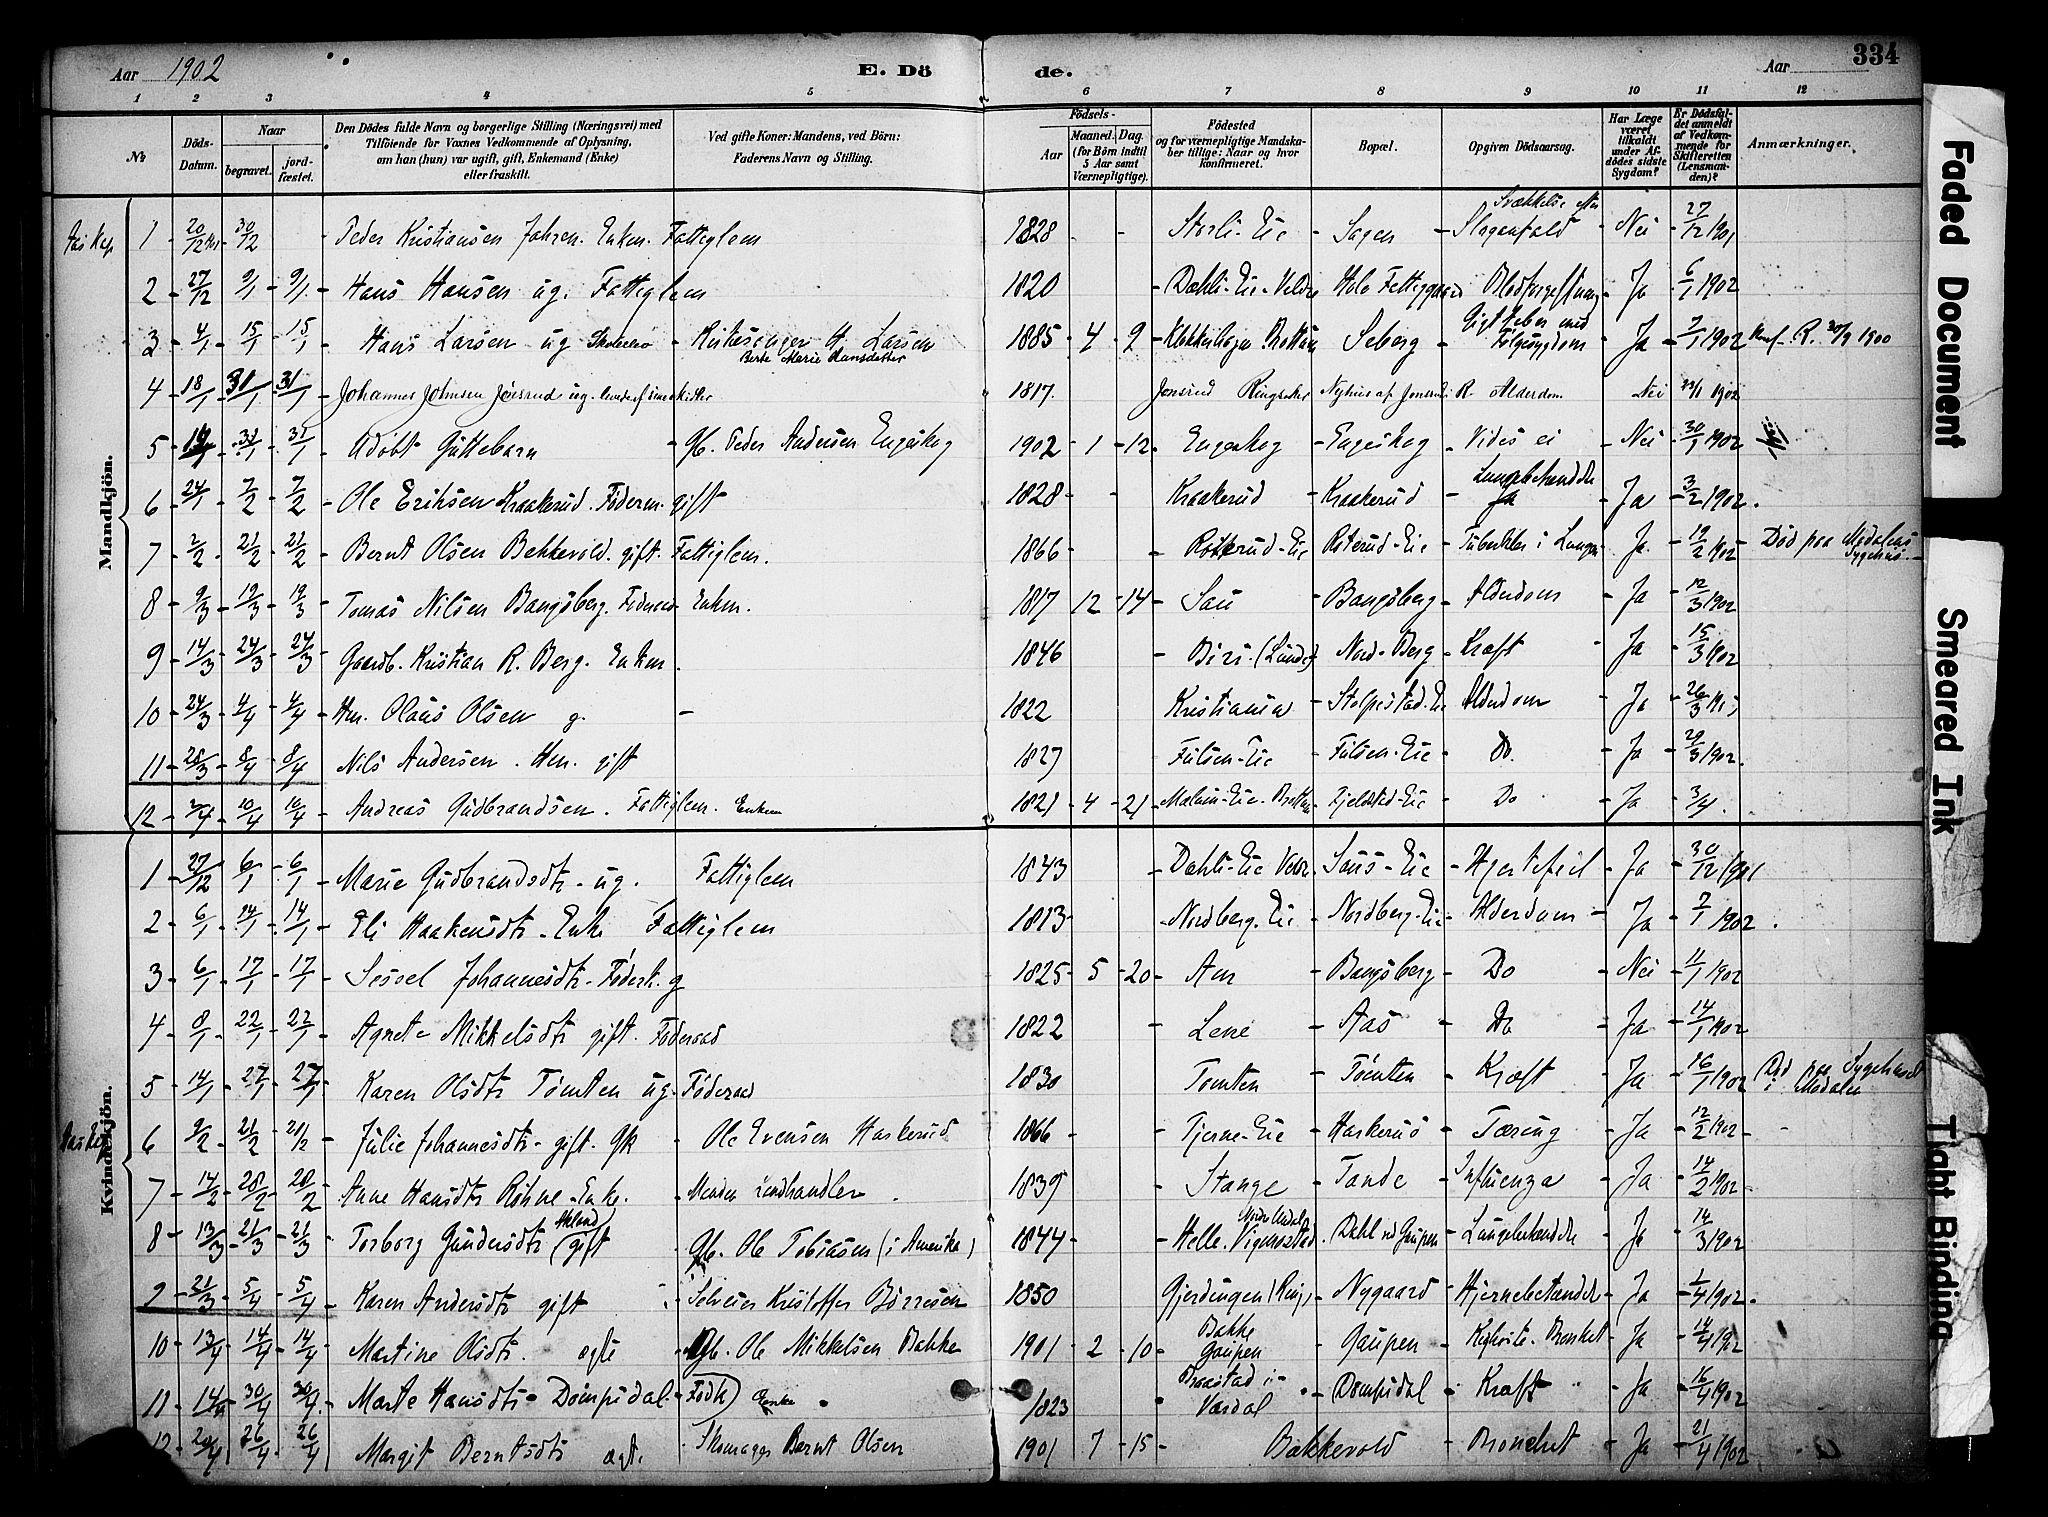 Aar 1902
E. Dö
de.
Aar
334
1 2 3 4 5 6 7 8 9 10 11 12
No
Döds-Datum.
Naar
begravet.
jord-fæstet.
Den Dödes fulde Navn og borgerlige Stilling (Næringsvei) med
Tilföiende for Voxnes Vedkommende af Oplysning,
om han (hun) var ugift, gift, Enkemand (Enke)
eller fraskilt.
Ved gifte Koner: Mandens, ved Börn:
Faderens Navn og Stilling.
Födsels-
Aar
Maaned. Dag.
(for Börn indtil
5 Aar samt
Værnepligtige).
Födested
og for værnepligtige Mandska-
ber tillige: Naar og hvor
konfirmeret.
Bopæl.
Opgiven Dödsaarsag.
Har Læge
været
tilkaldt
under Af-
dödes sidste
Sygdom?
Er Dödsfal-
det anmeldt
af Vedkom-
mende for
Skifteretten
(Lensman-
den)?
Anmærkninger.
Mandkjön.
1 20/12 30/12 Peder Kristiansen Enkm. Fattiglem 1828 Storli-Eie Sagen Svækkelse efter Slaganfald Nei 27/12 1901
2 27/12 9/1 9/1 Hans Hansen ug. Fattiglem 1820 Dæhli-Eie Veldre Fattiggaard Blodforgiftning Ja 6/1 1902
3 4/1 15/1 15/1 Hans Larsen ug Kirkesanger H. Larsen Berte Marie Hansdatter 1885 4 9 Seberg Gigtfeber med Følgesygdom Ja 7/1 1902 Konf. R. 30/9 1900
4 18/1 31/1 31/1 Johannes Johnsen Jonsrud ug. 1817 Jonsrud Ringsaker Nyhus af Jonsrud R. Alderdom Nei 23/1 1902
5 31/1 31/1 Udøbt Guttebarn Gb. Peder Andersen Engeskog 1902 1 12 Engeskog Engeskog Vides ei Nei 30/1 1902
6 24/1 7/2 7/2 Ole Eriksen Kraakerud. Føderm. gift 1828 Kraakerud Kraakerud Lungebetændelse Ja 3/2 1902.
7 2/2 21/2 21/2 Bernt Olsen Bekkevold. gift. Fattiglem. 1866 Roterud-Eie Roterud-Eie Tuberkler i Lungen Ja 19/2 1902 Død paa Mjødalens Sygehus
8 9/3 19/3 19/3 Tomas Nilsen Bangsberg. Føderaad Enkm. 1817 12 14 Sau Bangsberg Alderdom Ja 12/3 1902
9 14/3 24/3 24/3 Gaardb. Kristian R. Berg. Enkm. 1846 Biri (Lunde) Nord-Berg Kræft Ja 15/3 1902
10 24/3 4/4 4/4 Hm. Olaus Olsen g. 1822 Kristiania Stolpestad-Eie Alderdom Ja 26/3
11 28/3 8/4 8/4 Nils Andersen. Hm. gift 1827 Fulsen-Eie Fulsen-Eie Do. Ja 29/3 1902.
12 10/4 10/4 Andreas Gudbrandsen. Fattiglem. Enkem 1821 4 21 Fjeldstad-Eie Do Ja 3/4
Kvindekjön.
1 27/12 6/1 6/1 Marie Gudbrandsdtr. ug. Fattiglem 1843 Dæhli-Eie Veldr. Saus-Eie Hjertefeil Ja 30/12 1901
2 6/1 14/1 14/1 Eli Haakensdtr. Enke Fattiglem 1813 Nordberg-Eie Nordberg-Eie Alderdom Ja 7/1 1902.
3 6/1 17/1 17/1 Sessel Johannesdtr. Føderk. g 1825 5 20 Aur Bangsberg Do Nei 11/1 1902
4 8/1 22/1 22/1 Agnete Mikkelsdtr gift. Føderaad 1822 Lene Aas Do Ja 14/1 1902
5 14/1 27/1 27/1 Karen Olsdtr Tømten ug. Føderaad 1830 Tomten Tømten Kræft Ja 16/1 1902 Død paa Sygehuset i Mødalen
6 9/2 21/2 21/2 Julie Johannesdtr. gift. Gk Ole Evensen Haskerud 1866 Tjerne-Eie Haskerud Tæring Ja 12/2 1902
7 14/2 28/2 28/2 Anne Hansdtr Røhne-Enke. Manden Landhandler 1839 Stange Tande Influenza Ja 14/2 1902
8 13/3 21/3 21/3 Torborg Gundersdtr (gift Gb. Ole Tobiasen (i Amerika) 1844 Helle. Vigmostad Dahl ved Gaupen Lungebetændelse Ja 14/3 1902
9 21/3 5/4 5/4 Karen Andersdtr gift Selveier Kristoffer Børresen 1850 Gjerdingen (Ring.) Nygaard Hjernebetændelse Ja 1/4 1902.
10 13/4 14/4 14/4 Martine Olsdtr. ægte Gb. Ole Mikkelsen Bakke 1901 2 10 Bakke Gaupen Gaupen Kighoste. Bronkit Ja 14/4 1902
11 14/4 30/4 30/4 Marte Hansdtr Dompidal Fødk) Enke 1823 Braastad i Vardal Dompidal Kræft Ja 16/4 1902
12 20/4 26/4 26/4 Margit Berntsdtr ægt. Skomager Bernt Olsen 1901 7 15 Bakkevold Bronchit Ja 21/4 1902
Faded Document
Smeared Ink
Tight Binding